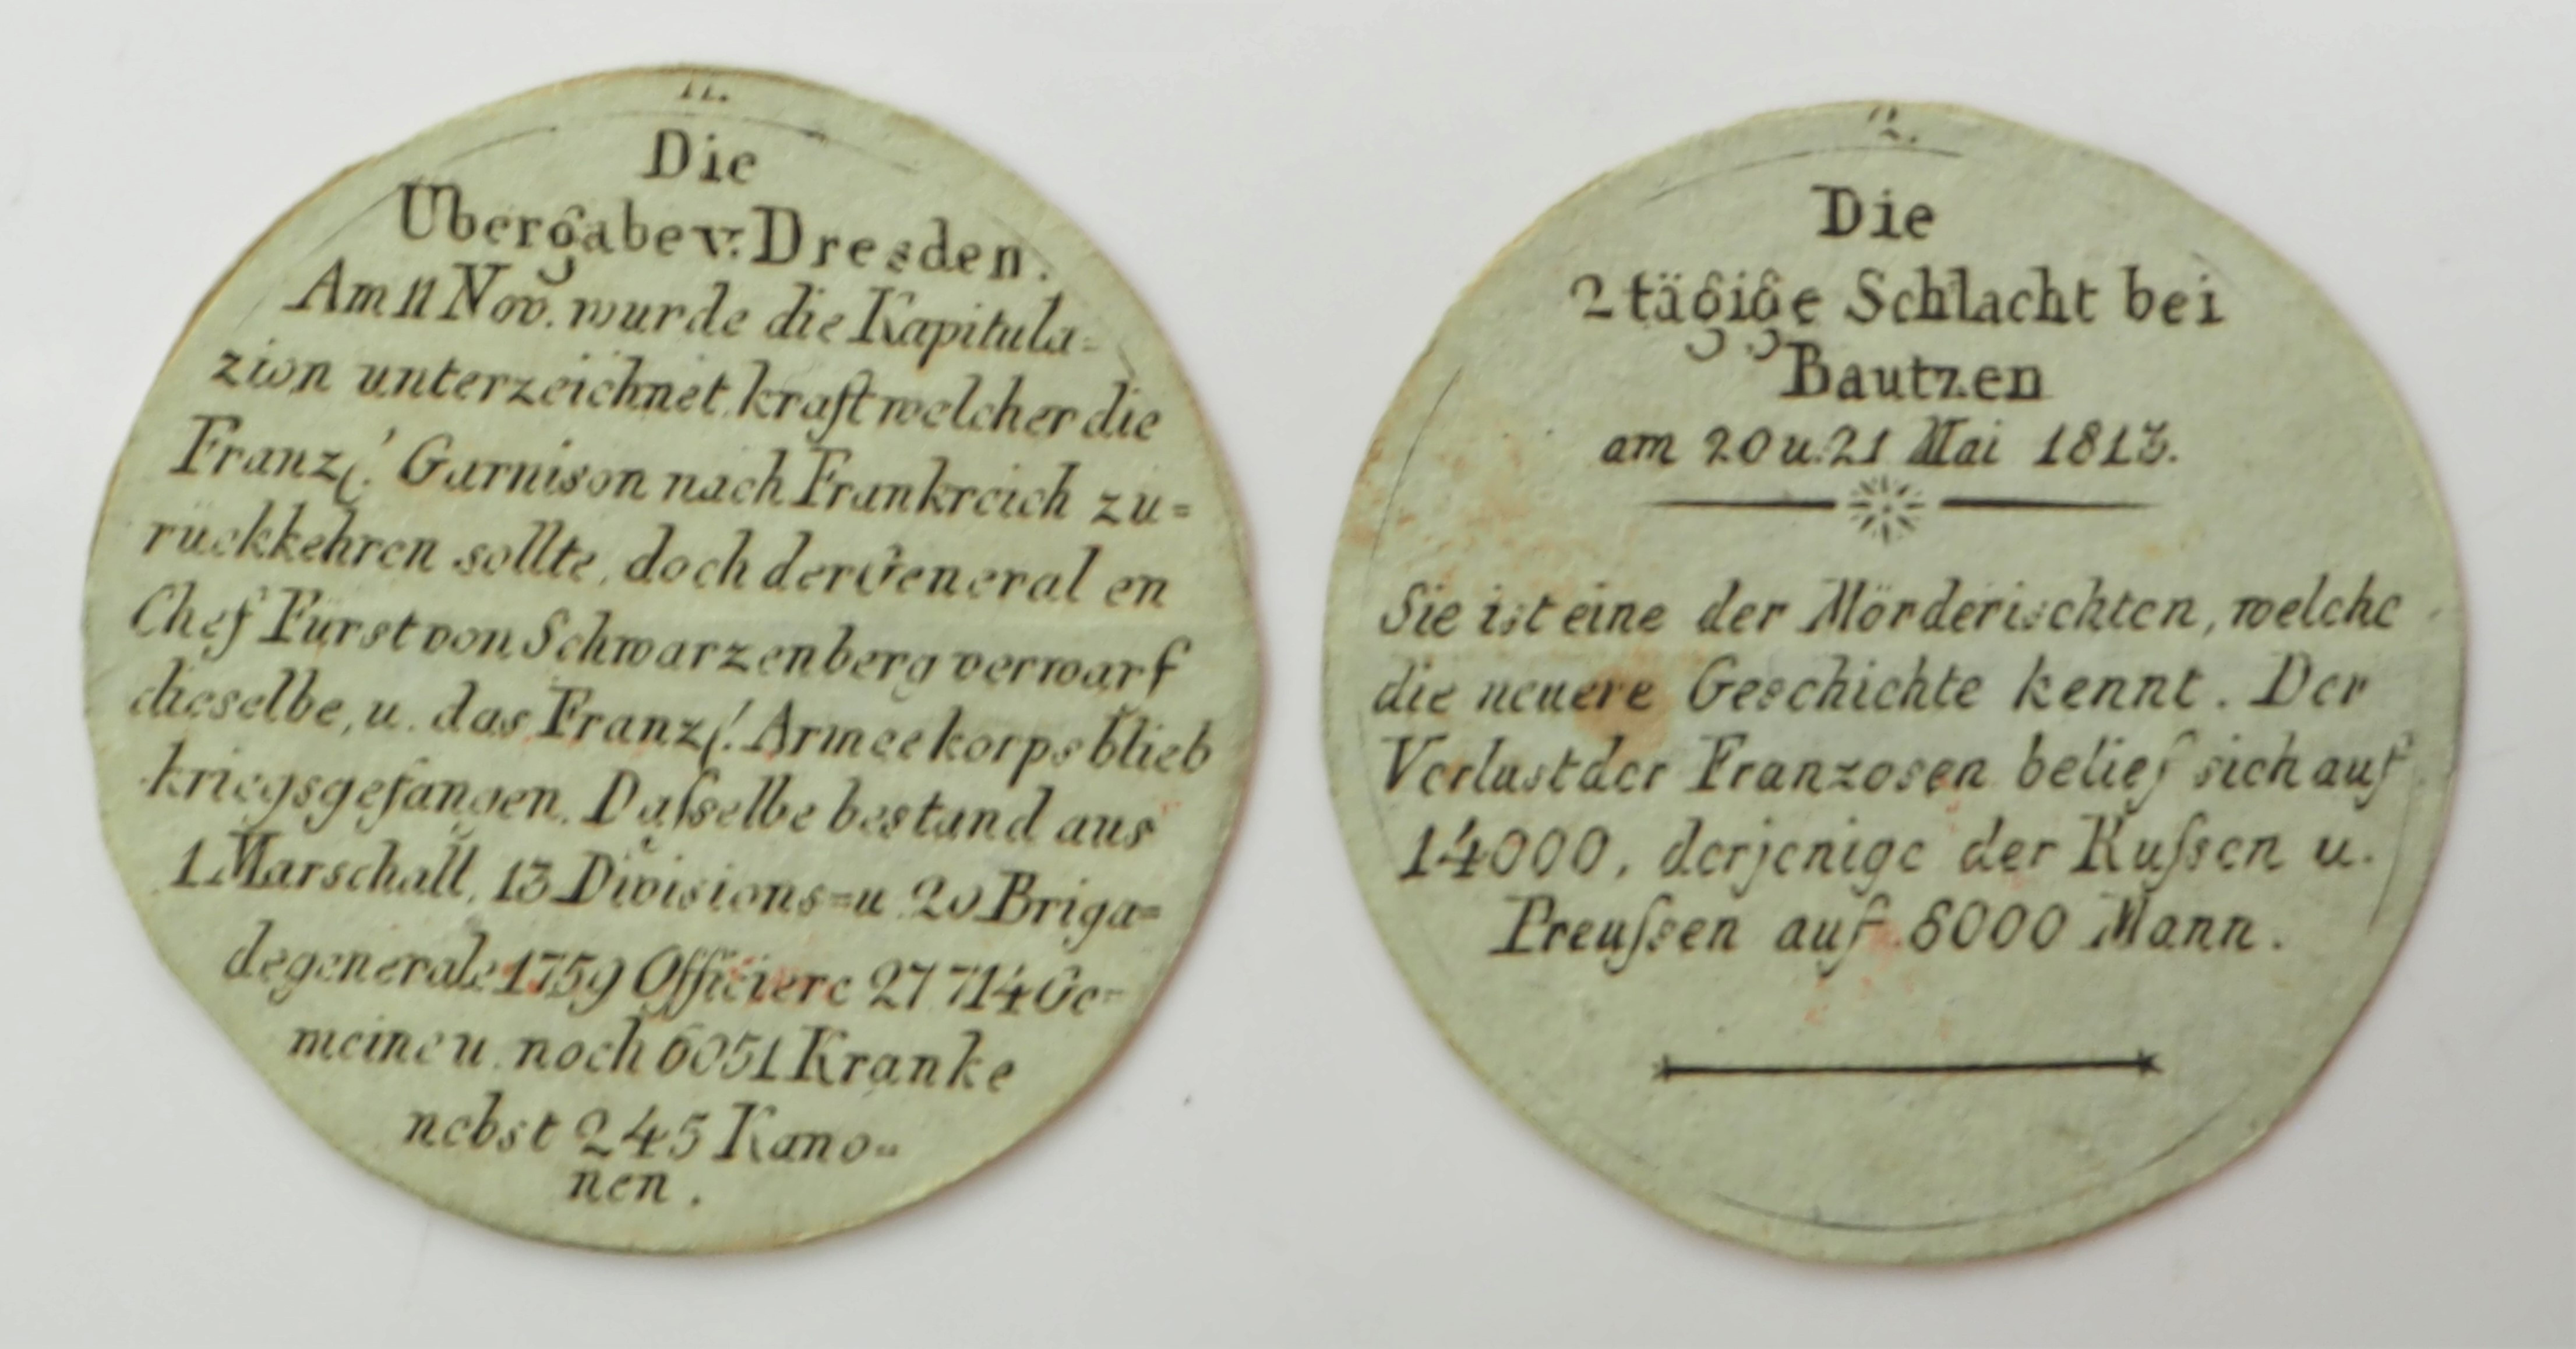 11.
Die
Ubergabe v. Dresden.
Am 11 Nov. wurde die Kapitula=
zion unterzeichnet kraft welcher die
Franzſ. Garnison nach Frankreich zu=
rückkehren sollte, doch der General en
Chef Fürst von Schwarzenberg verwarf
dieselbe, u. das Franzſ. Armeekorps blieb
kriegsgefangen. Daſselbe bestand aus
1 Marschall, 13 Divisions= u 20 Briga=
degenerale 1759 Officiere 27 714 Ge=
meine u. noch 6051 Kranke
nebst 245 Kano=
nen.
2.
Die
2 tägige Schlacht bei
Bautzen
am 20 u. 21 Mai 1813.
Sie ist eine der Mörderischten, welche
die neuere Geschichte kennt. Der
Verlust der Franzosen belief sich auf
14000, derjenige der Ruſsen u.
Preuſsen auf 8000 Mann.